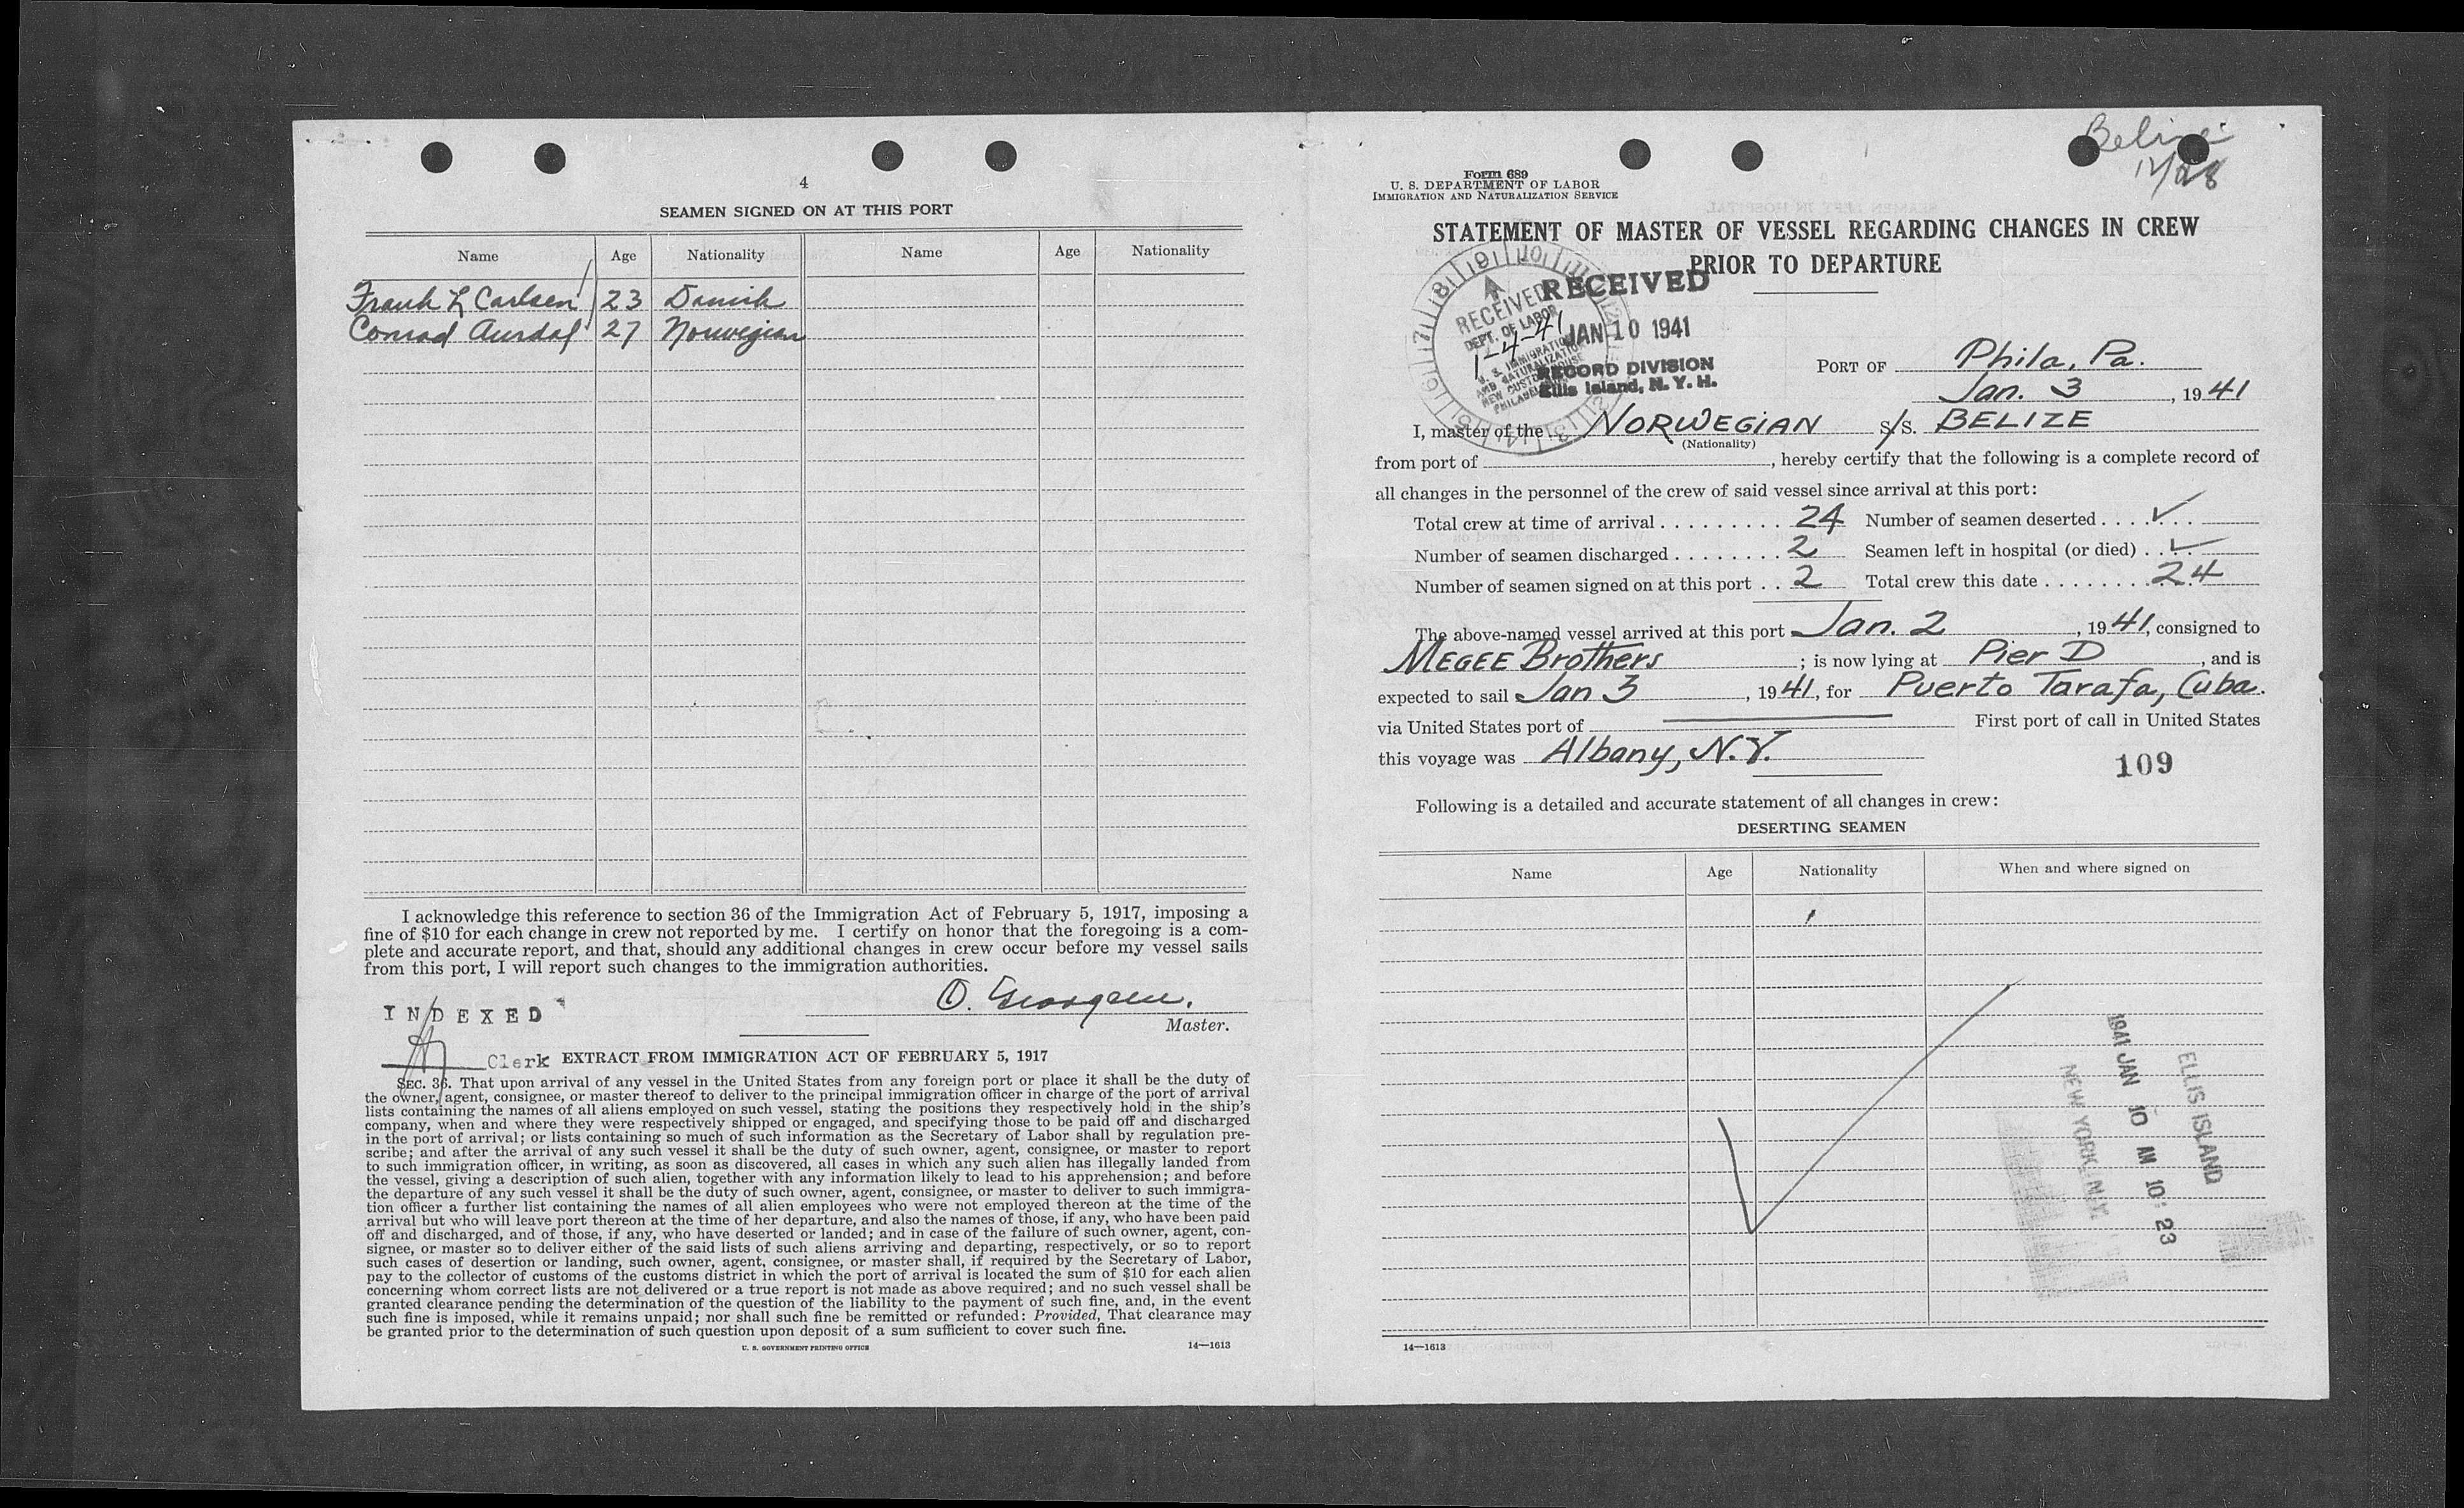 4
SEAMEN SIGNED ON AT THIS PORT
Name Age Nationality Name Age Nationality
Frank L Carlsen 23 Danish
Conrad Aurdal 27 Norwegian
I acknowledge this reference to section 36 of the Immigration Act of February 5, 1917, imposing a
fine of $10 for each change in crew not reported by me. I certify on honor that the foregoing is a com-
plete and accurate report, and that, should any additional changes in crew occur before my vessel sails
from this port, I will report such changes to the immigration authorities.
INDEXED
O.
Master.
Clerk
EXTRACT FROM IMMIGRATION ACT OF FEBRUARY 5, 1917
SEC. 36. That upon arrival of any vessel in the United States from any foreign port or place it shall be the duty of
the owner, agent, consignee, or master thereof to deliver to the principal immigration officer in charge of the port of arrival
lists containing the names of all aliens employed on such vessel, stating the positions they respectively hold in the ship's
company, when and where they were respectively shipped or engaged, and specifying those to be paid off and discharged
in the port of arrival; or lists containing so much of such information as the Secretary of Labor shall by regulation pre-
scribe; and after the arrival of any such vessel it shall be the duty of such owner, agent, consignee, or master to report
to such immigration officer, in writing, as soon as discovered, all cases in which any such alien has illegally landed from
the vessel, giving a description of such alien, together with any information likely to lead to his apprehension; and before
the departure of any such vessel it shall be the duty of such owner, agent, consignee, or master to deliver to such immigra-
tion officer a further list containing the names of all alien employees who were not employed thereon at the time of the
arrival but who will leave port thereon at the time of her departure, and also the names of those, if any, who have been paid
off and discharged, and of those, if any, who have deserted or landed; and in case of the failure of such owner, agent, con-
signee, or master so to deliver either of the said lists of such aliens arriving and departing, respectively, or so to report
such cases of desertion or landing, such owner, agent, consignee, or master shall, if required by the Secretary of Labor,
pay to the collector of customs of the customs district in which the port of arrival is located the sum of $10 for each alien
concerning whom correct lists are not delivered or a true report is not made as above required; and no such vessel shall be
granted clearance pending the determination of the question of the liability to the payment of such fine, and, in the event
such fine is imposed, while it remains unpaid; nor shall such fine be remitted or refunded: Provided, That clearance may
be granted prior to the determination of such question upon deposit of a sum sufficient to cover such fine.
U. S. GOVERNMENT PRINTING OFFICE 14—1613
Belize
12/28
Form 689
U. S. DEPARTMENT OF LABOR
IMMIGRATION AND NATURALIZATION SERVICE
STATEMENT OF MASTER OF VESSEL REGARDING CHANGES IN CREW
PRIOR TO DEPARTURE
RECEIVED
JAN 10 1941
RECORD DIVISION
Ellis Island, N. Y. H.
RECEIVED
DEPT. OF LABOR
1-4-41
U. S. IMMIGRATION
AND NATURALIZATION
NEW CUSTOMHOUSE
PORT OF Phila, Pa.
Jan. 3, 1941
I, master of the NORWEGIAN S/S. BELIZE
(Nationality)
from port of , hereby certify that the following is a complete record of
all changes in the personnel of the crew of said vessel since arrival at this port:
Total crew at time of arrival . . . . . . . . . 24 Number of seamen deserted . . . . ✓ . .
Number of seamen discharged . . . . . . . . 2 Seamen left in hospital (or died) . . ✓ . .
Number of seamen signed on at this port . . 2 Total crew this date . . . . . . . . . . 24
The above-named vessel arrived at this port Jan. 2, 1941, consigned to
MEGEE Brothers; is now lying at Pier D, and is
expected to sail Jan 3, 1941, for Puerto Tarafa, Cuba.
via United States port of First port of call in United States
this voyage was Albany, N.Y.
109
Following is a detailed and accurate statement of all changes in crew:
DESERTING SEAMEN
Name Age Nationality When and where signed on
ELLIS ISLAND
1941 JAN 10 AM 10: 23
NEW YORK, N.Y.
14—1613